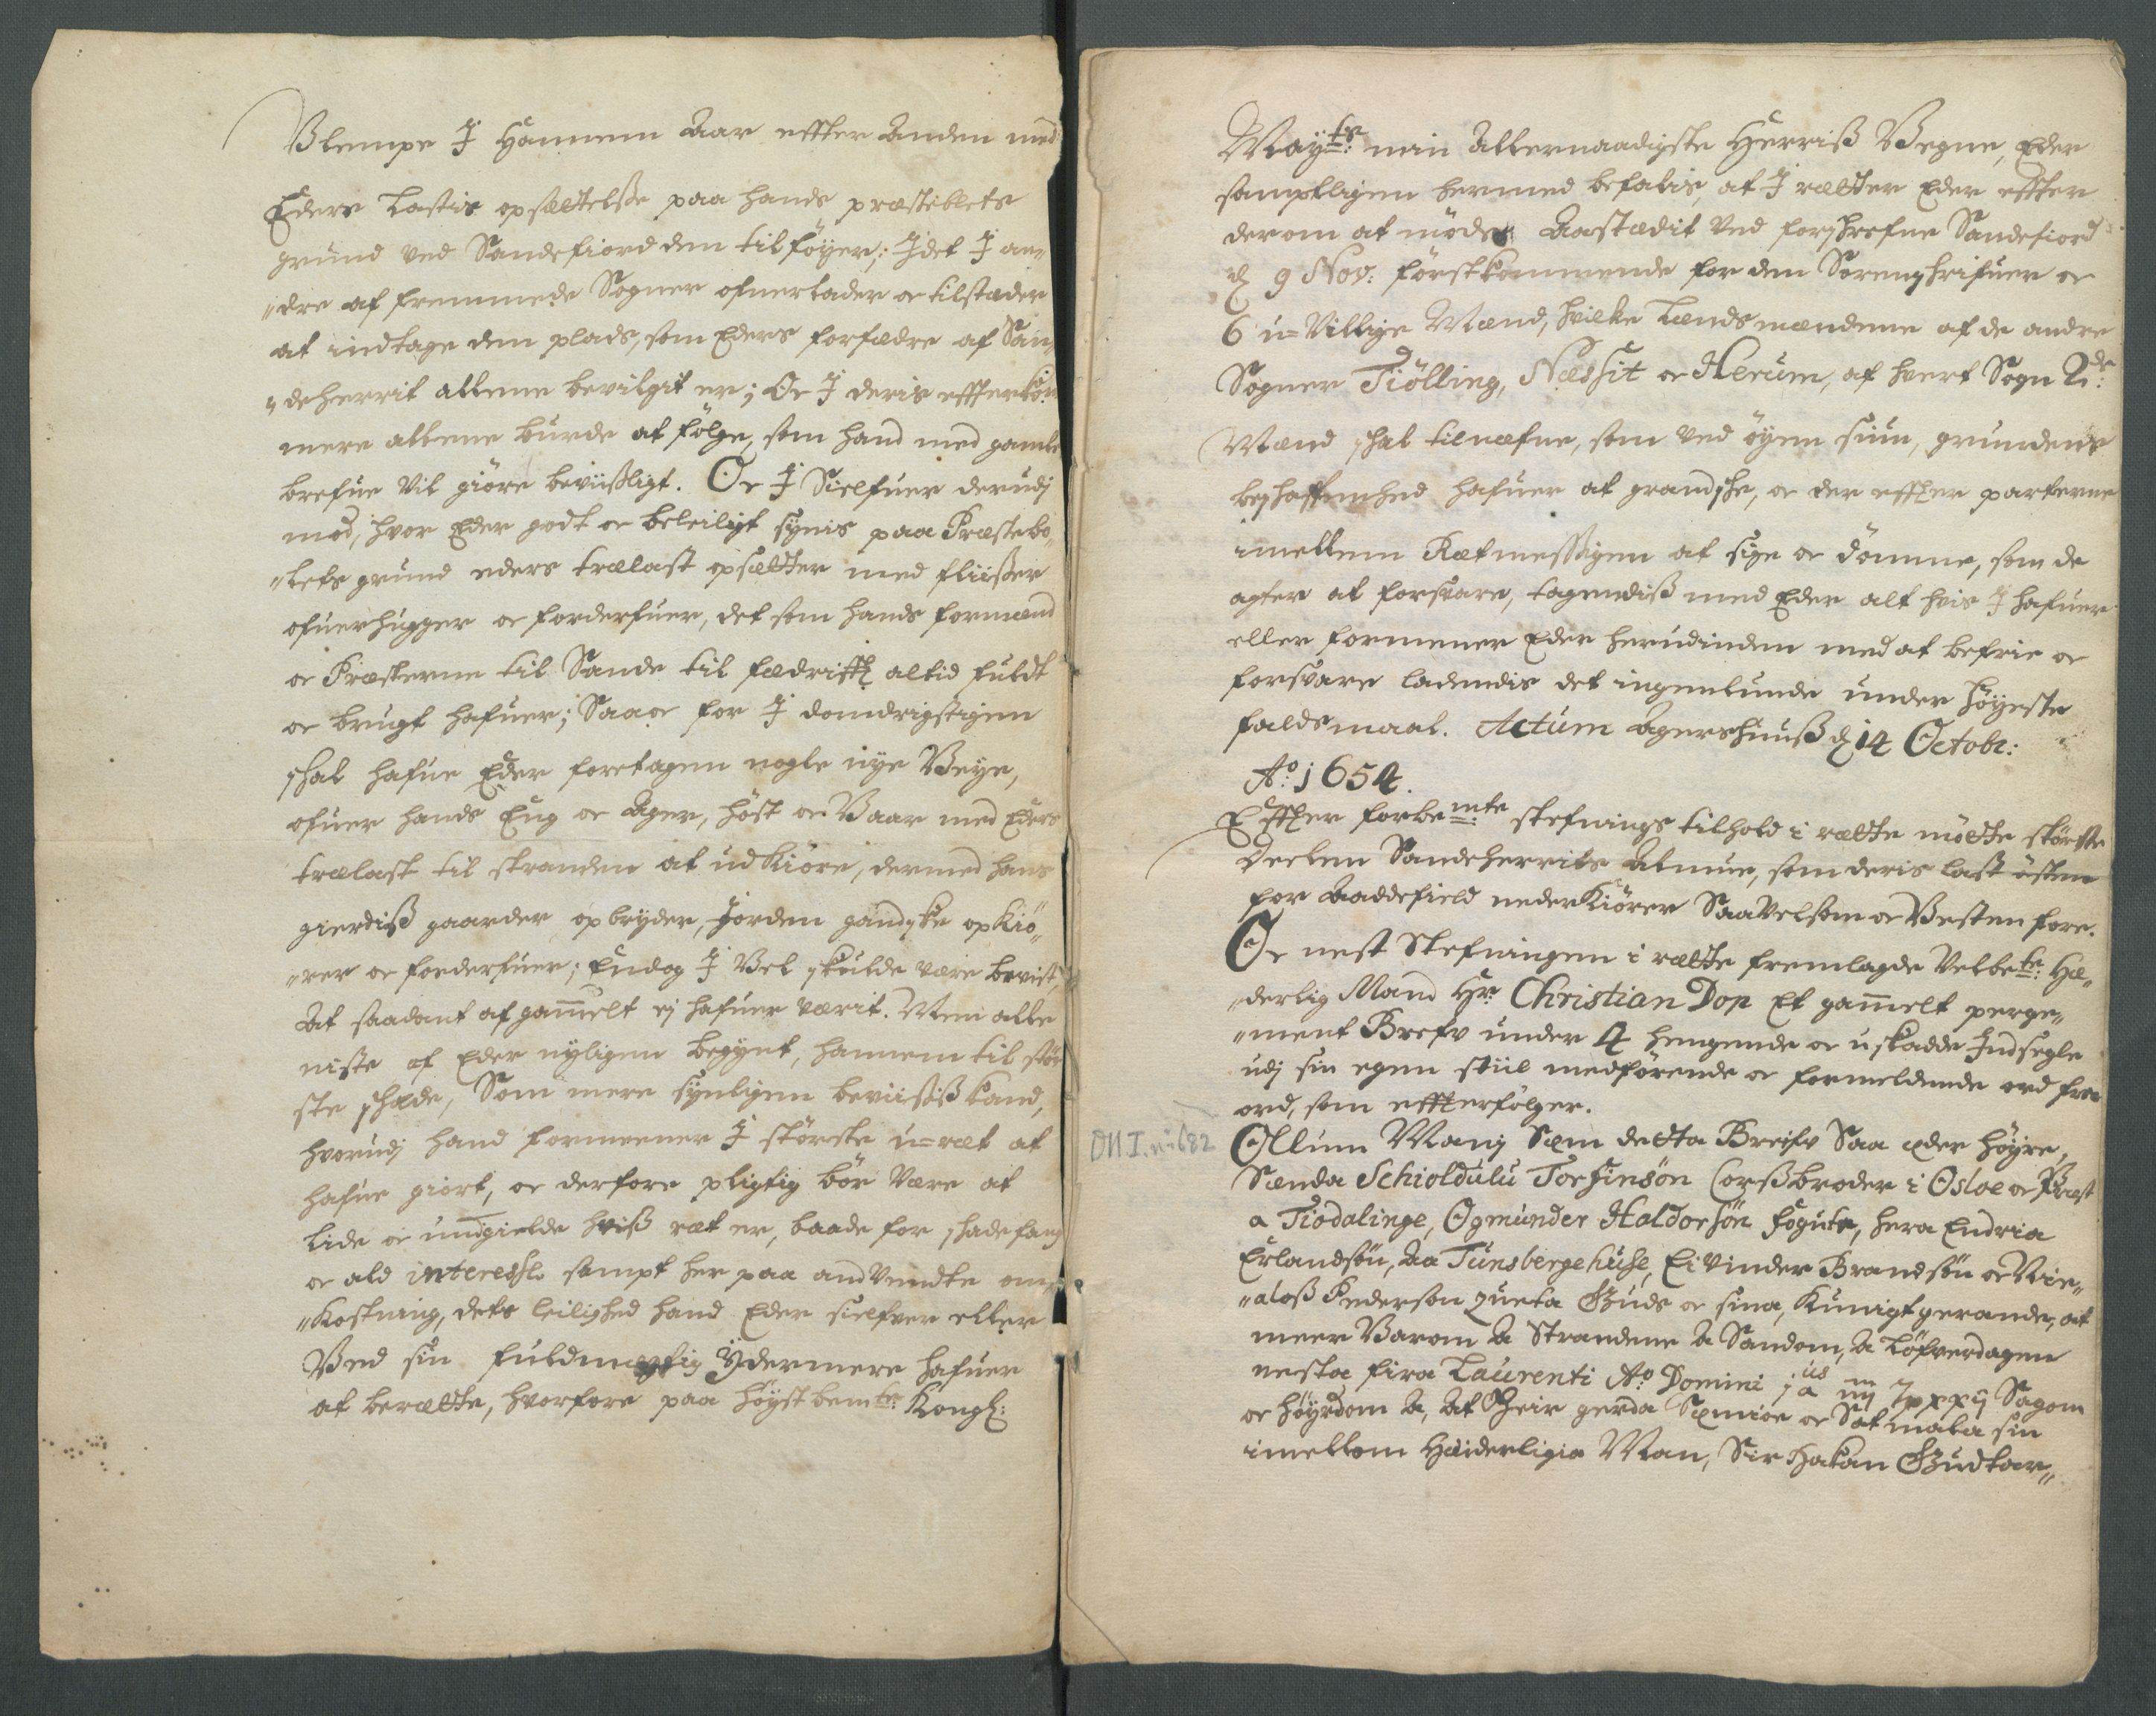 Ulempe I Hannem Aar effter Anden med
Eders Lastis opsættelsse paa hands præsteblets
grund ved Sandefiord dem tilföyer; I det I an„
„dre af fremmede Sogner ofuerlader oc tilstæder
at indtage den plads, som Eders forfædre af San„
„deherrit allene bevilgit er; Oc I deris effterkom„
mere allene burde at fölge, som hand med gamle
brefue vil giöre beviißligt. Oc I Sielfuer derudj
mod, hvor Eder godt oc beleiligt synis paa Præstebo„
„lets grund eders trælast opsætter med fliißer
ofuerhugger oc forderfuer, det som hands formænd
oc Præsterne til Sande til fædrifft altid fuldt
oc brugt hafuer; Saa oc for I domdrigstigen
schal hafue Eder foretagen nogle nye Veye,
ofuer hands Eng oc Ager, höst oc Vaar med Eders
trælast til stranden at udkiöre, dermed hans
gierdiß gaarder opbryder, Jorden gandske opkiö„
„rer oc forderfuer; Endog I Vel skulde være bevist,
At saadant af gammelt ej hafuer værit. Men alle
niste af Eder nyligen begynt, hannem til stör
ste schade, Som mere synligen beviisiß kand,
hvorudj hand formeener I störste u=ræt at
hafue giort, oc derfore pligtig bör være at
lide oc undgielde hviß ræt er, baade for schadefang
oc ald interesse sampt her paa andvendte om„
„kostning, dets leilighed hand Eder sielfver eller
Ved sin fuldmegtig Ydermere hafuer
at berætte, hvorfore paa höystbemte: Kongl:
Mayts: min Allernaadigste Herriß Vegne, Eder
samptligen hermed befalis, at I rætter Eder effter
derom at möde Aastædit Ved forschrefne Sandefiord
d 9 Nov: förstkommende for den Sorenschrifuer oc
6 u=Villige Mænd, hvilke Lændsmændene af de andre
Sogner Tiölling, Næssit oc Hedrum, af hvert Sogn 2de:
Mænd schal tilnæfne, som ved öyen siun, grundens
beschaffenhed hafuer at grandsche, oc der effter parterne
imellem Rætmessigen at sige oc dömme, som de
agter at forsvare, tagendiß med Eder alt hvis I hafuer
eller formener Eder herudinden med at befrie oc
forsvare ladendis det ingenlunde under höyeste
faldsmaal. Actum Agershuuß d 14 Octobr:
Ao: 1654.
Effter forbemte stefnings tilhold i rætte mötte störste
Deelen Sandeherrits Almue, som deris last östen
for Aaddefield nederkiörer Saavelsom oc Vesten fore.
Oc nest Stefningen i rætte fremlagde Velbete: Hæ„
„derlig Mand Hr: Christian Dop Et gammelt perge„
„ment Brefv under 4 hengende oc uskadde Indsegle
udj sin egen stiil medförende oc formeldende ord fra
ord, som effterfölger.
DN I. n: 682
Ollum Manj Sæm detta Breifv Saa eder höyre,
Sænda Schioldulu Torfinsön Corßbroder i Osloe oc Præst
a Tiodalinge, Ogmunder Haldorsön fogute, hera Endria
Erlandsön, Aa Tunsbergehuse, Eivinder Brandsön oc Nic„
„alaß Pederson queta Guds oc sina, kunigt gerande, at
meer Varom A Strandene A Sandom, A Löfverdagen
nesta fira Laurenti Ao Domini Sagom
oc höyrdom A, At Their gerda Sæmioe oc Satmala sin
imellom Häiderligia Man, Sir Hakan Gudtor„